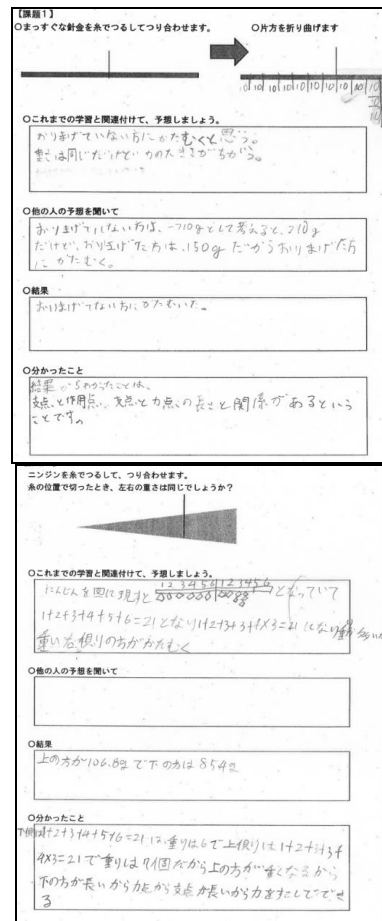 【課題1】
○まっすぐな針金を糸でつるしてつり合わせます。
○片方を折り曲げます
10 10 10 10 10 10 10 10 10
10
10
○これまでの学習と関連付けて、予想しましょう。
おりまげていない方にかたむくと思う。
重さは同じだけど 力の大きさがちがう。
○他の人の予想を聞いて
おりまげていない方は、一つ10gとして考えると、210g
だけど、おりまげた方は、150gだからおりまげた方
にかたむく。
○結果
おりまげてない方にかたむいた。
○分かったこと
結果からわかったことは、
支点と作用点、支点と力点の長さと関係があるという
ことです。
ニンジンを糸でつるして、つり合わせます。
糸の位置で切ったとき、左右の重さは同じでしょうか?
○これまでの学習と関連付けて、予想しましょう。
にんじんを図に現すと 1 2 3 4 5 6 1 2 3 4 5 6 となっていて
1+2+3+4+5+6=21となり1+2+3+3+4×3=21になり
重い右側りの方がかたむく
○他の人の予想を聞いて
○結果
上の方が106.8gで下の方は85.4g
○分かったこと
下側は1+2+3+4+5+6=21は、重りは6で上側りは1+2+3+3+
4×3=21で重りは7個だから上の方が重くなるから
下の方が長いから 支点が長いから力をすこしでき
る